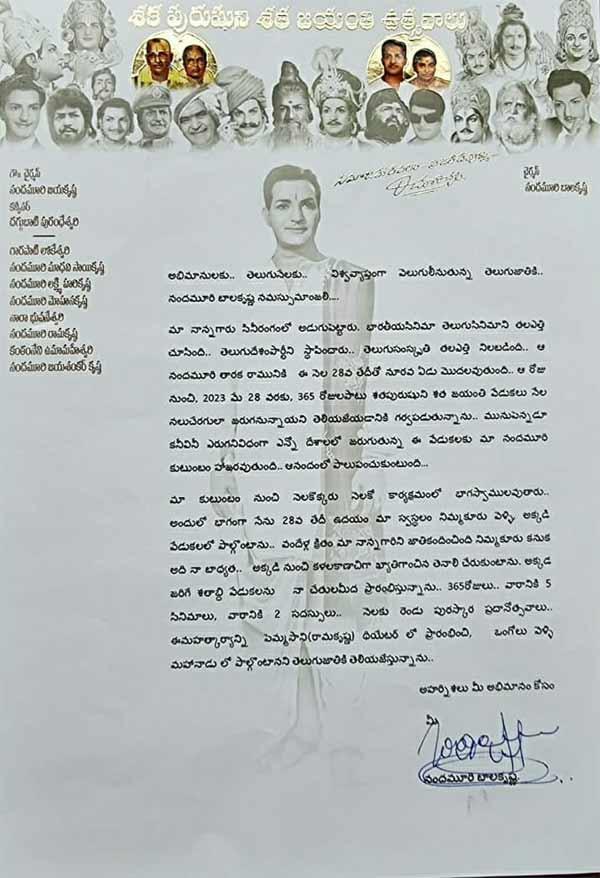 శక పురుషుని శత జయంతి ఉత్సవాలు
గౌ॥ చైర్మన్
నందమూరి జయకృష్ణ
కన్వీనర్
దగ్గుబాటి పురంధేశ్వరి
గారపాటి లోకేశ్వరి
నందమూరి మాధవి సాయికృష్ణ
నందమూరి లక్ష్మీ హరికృష్ణ
నందమూరి మోహనకృష్ణ
నారా భువనేశ్వరి
నందమూరి రామకృష్ణ
కంఠంనేని ఉమామహేశ్వరి
నందమూరి జయశంకర్ కృష్ణ
చైర్మన్
నందమూరి బాలకృష్ణ
అభిమానులకు.. తెలుగునేలకు.. విశ్వవ్యాప్తంగా వెలుగులీనుతున్న తెలుగుజాతికి..
నందమూరి బాలకృష్ణ నమస్సుమాంజలి....
మా నాన్నగారు సినీరంగంలో అడుగుపెట్టారు. భారతీయసినిమా తెలుగుసినిమాని తలఎత్తి
చూసింది.. తెలుగుదేశంపార్టీని స్థాపించారు.. తెలుగుసంస్కృతి తలఎత్తి నిలబడింది.. ఆ
నందమూరి తారక రామునికి ఈ నెల 28వ తేదీతో నూరవ ఏడు మొదలవుతుంది.. ఆ రోజు
నుంచి, 2023 మే 28 వరకు, 365 రోజులపాటు శతపురుషుని శత జయంతి వేడుకలు నేల
నలుచెరగులా జరుగనున్నాయని తెలియజేయడానికి గర్వపడుతున్నాను.. మునుపెన్నడూ
కనీవినీ ఎరుగనివిధంగా ఎన్నో దేశాలలో జరుగుతున్న ఈ వేడుకలకు మా నందమూరి
కుటుంబం హాజరవుతుంది.. ఆనందంలో పాలుపంచుకుంటుంది...
మా కుటుంబం నుంచి నెలకొక్కరు నెలకో కార్యక్రమంలో భాగస్వాములవుతారు..
అందులో భాగంగా నేను 28వ తేదీ ఉదయం మా స్వస్థలం నిమ్మకూరు వెళ్ళి, అక్కడి
వేడుకలలో పాల్గొంటాను.. వందేళ్ల క్రితం మా నాన్నగారిని జాతికందించింది నిమ్మకూరు కనుక
అది నా బాధ్యత.. అక్కడి నుంచి కళలకాణాచిగా ఖ్యాతిగాంచిన తెనాలి చేరుకుంటాను. అక్కడ
జరిగే శతాబ్ది వేడుకలను నా చేతులమీద ప్రారంభిస్తున్నాను.. 365రోజులు.. వారానికి 5
సినిమాలు, వారానికి 2 సదస్సులు.. నెలకు రెండు పురస్కార ప్రదానోత్సవాలు..
ఈమహత్కార్యాన్ని పెమ్మసాని(రామకృష్ణ) థియేటర్ లో ప్రారంభించి, ఒంగోలు వెళ్ళి
మహానాడు లో పాల్గొంటానని తెలుగుజాతికి తెలియజేస్తున్నాను..
అహర్నిశలు మీ అభిమానం కోసం
మీ
నందమూరి బాలకృష్ణ